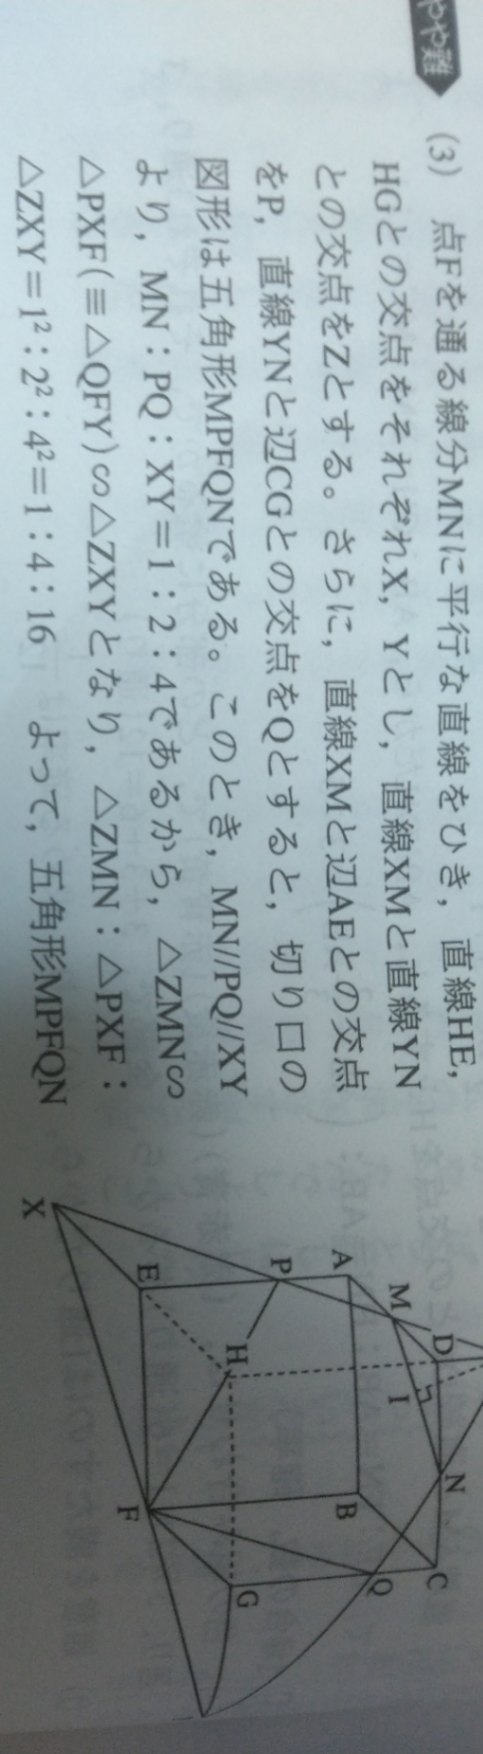 やや難
(3) 点Fを通る線分MNに平行な直線をひき，直線HE，
HGとの交点をそれぞれX，Yとし，直線XMと直線YN
との交点をZとする。さらに，直線XMと辺AEとの交点
をP，直線YNと辺CGとの交点をQとすると，切り口の
図形は五角形MPFQNである。このとき，MN//PQ//XY
より，MN：PQ：XY＝1：2：4であるから，△ZMN∽
△PXF(≡△QFY)∽△ZXYとなり，△ZMN：△PXF：
△ZXY＝1²：2²：4²＝1：4：16　よって，五角形MPFQN
D
N
C
M
I
A
B
Q
P
H
G
E
F
X